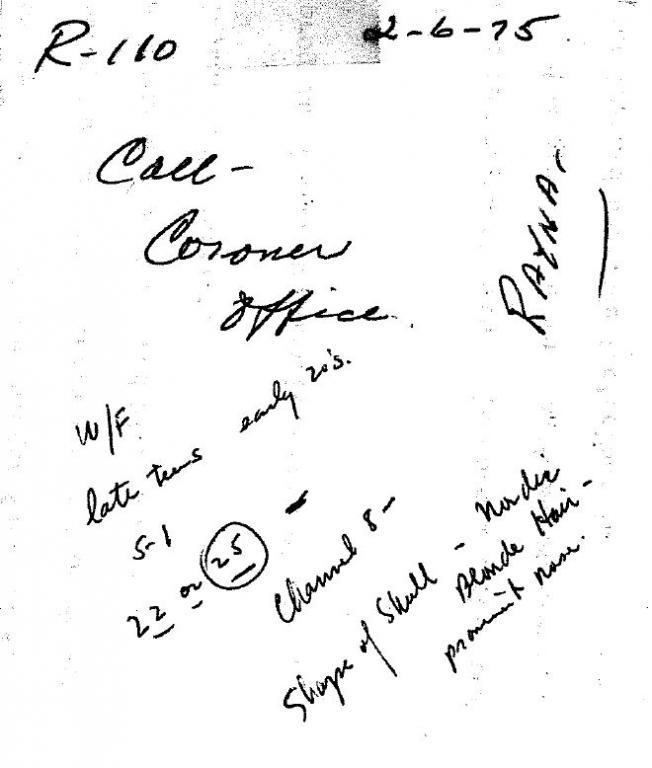 R-110 2-6-75
Call-
Coroner
office.
RAYNA.
W/F
late teens early 20's.
5-1
22 or 25
Channel 8-
Shape of Skull - Nordic
Blonde Hair-
prominit nose.